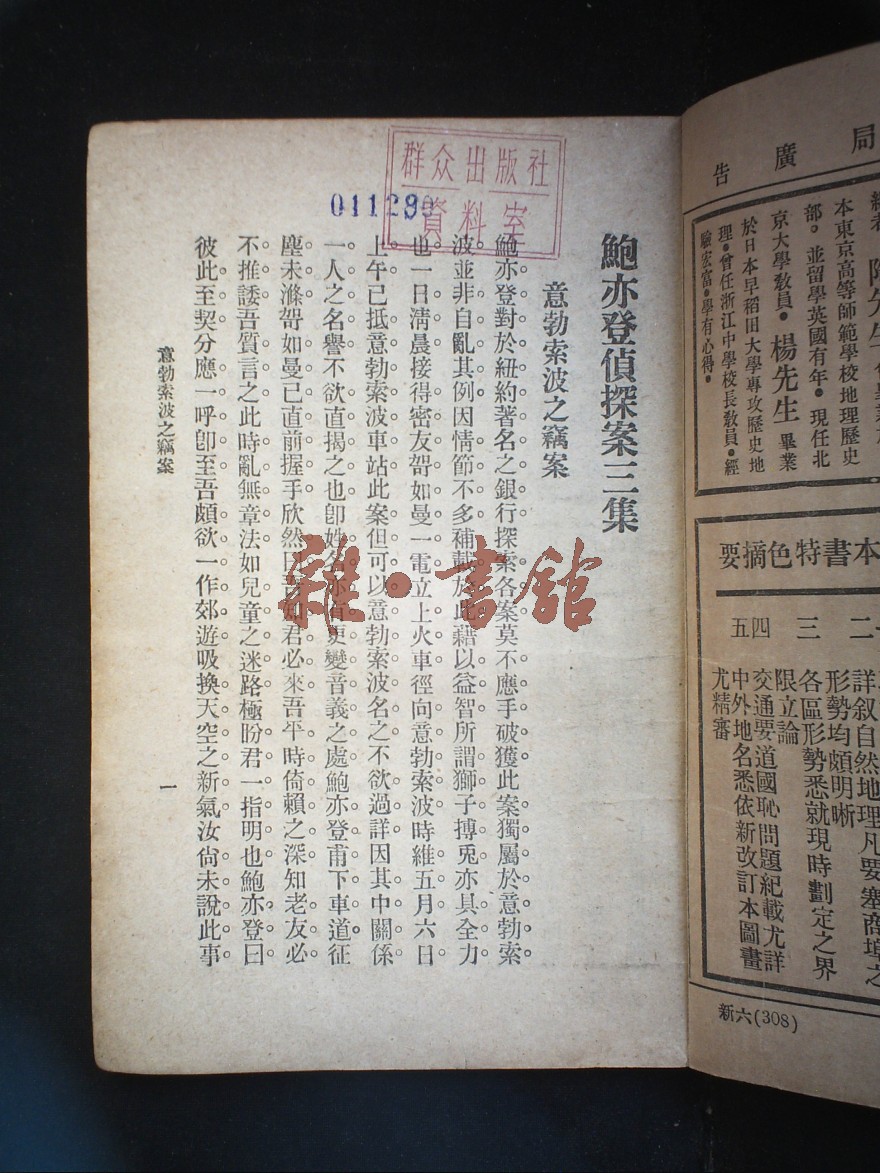 群众出版社
資料室
011290
鮑亦登偵探案三集
意勃索波之竊案
鮑亦登對於紐約著名之銀行探索各案莫不應手破獲此案獨屬於意勃索
波並非自亂其例因情節不多補載於此藉以益智所謂獅子搏兎亦具全力
也一日淸晨接得密友哿如曼一電立上火車徑向意勃索波時維五月六日
上午已抵意勃索波車站此案但可以意勃索波名之不欲過詳因其中關係
一人之名譽不欲直揭之也卽姓名亦有更變音義之處鮑亦登甫下車道征
塵未滌哿如曼已直前握手欣然曰吾知君必來吾平時倚賴之深知老友必
不推諉吾質言之此時亂無章法如兒童之迷路極盼君一指明也鮑亦登曰
彼此至契分應一呼卽至吾頗欲一作郊遊吸換天空之新氣汝尙未說此事
意勃索波之竊案
一
雜·書館
局廣告
本東京高等師範學校地理歷史
部。並留學英國有年。現任北
京大學敎員。楊先生畢業
於日本早稻田大學專攻歷史地
理。曾任浙江中學校長敎員。經
驗宏富。學有心得。
本書特色摘要
二
詳叙自然地理凡要塞商埠之
形勢均頗明晰
三
各區形勢悉就現時劃定之界
限立論
四
交通要道國恥問題紀載尤詳
五
中外地名悉依新改訂本圖畫
尤精審
新六(308)